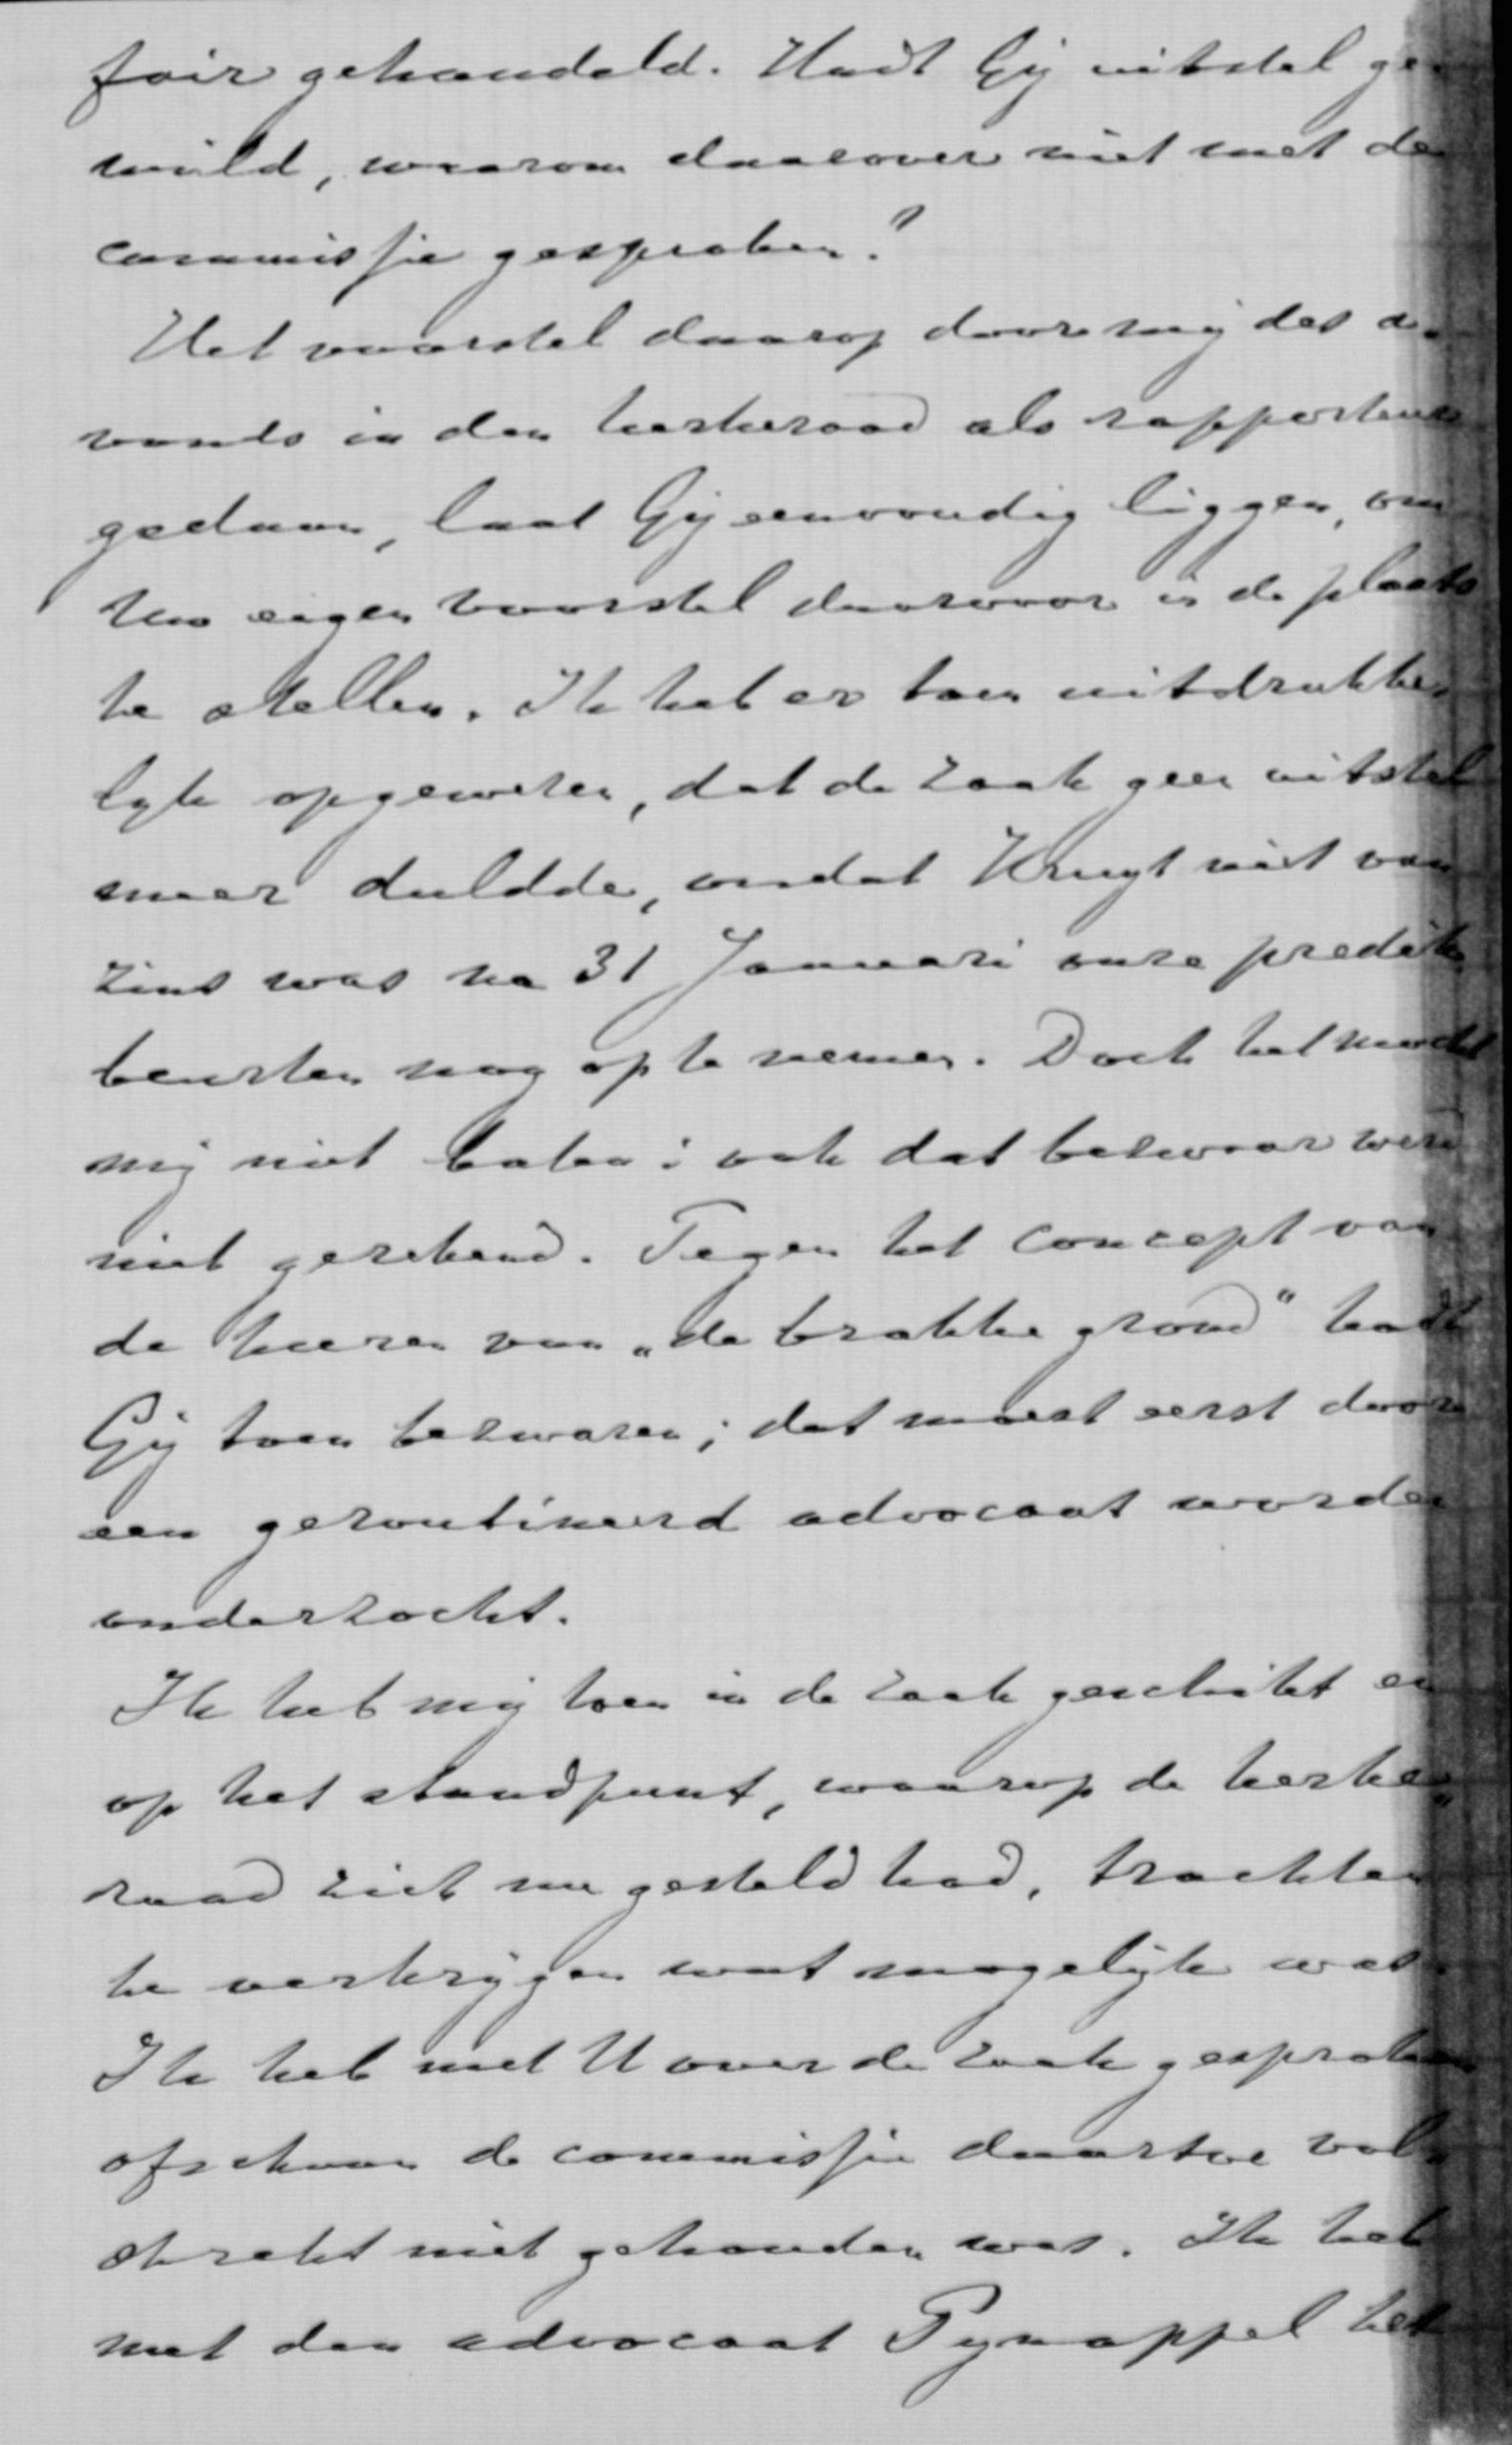 fair gehandeld. Hadt Gij uitstel ge-
wild, waarom daarover niet met de
commissie gesproken?
Het voorstel daarop door mij des a-
vonds in den kerkeraad als rapporteur
gedaan, laat Gij eenvoudig liggen, om
Uw eigen voorstel daarvoor in de plaats
te stellen. Ik heb er toen uitdrukke-
lyk opgewezen, dat de zaak geen uitstel
meer duldde, omdat Kruyt niet van
zins was na 31 Januari onze predik-
beurten nog op te nemen. Doch het mocht
mij niet baten: ook dat bezwaar werd
niet gerekend. Tegen het concept van
de heeren van „de brakke grond" hadt
Gij toen bezwaren; dat moest eerst door
een geroutineerd advocaat worden
onderzocht.
Ik heb mij toen in de zaak geschikt en
op het standpunt, waarop de kerke-
raad zich nu gesteld had, trachten
te verkrijgen wat mogelijk was.
Ik heb met U over de zaak gesproken
ofschoon de commissie daartoe vol-
strekt niet gehouden was. Ik heb
met den advocaat Pynappel het